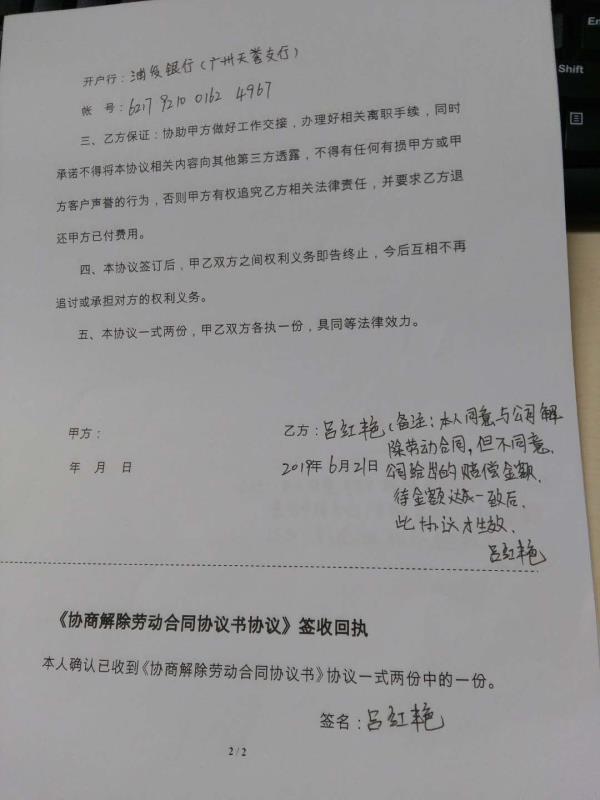 开户行：浦发银行（广州天誉支行）
帐 号：6217 9210 0162 4967
三、乙方保证：协助甲方做好工作交接，办理好相关离职手续，同时
承诺不得将本协议相关内容向其他第三方透露，不得有任何有损甲方或甲
方客户声誉的行为，否则甲方有权追究乙方相关法律责任，并要求乙方退
还甲方已付费用。
四、本协议签订后，甲乙双方之间权利义务即告终止，今后互相不再
追讨或承担对方的权利义务。
五、本协议一式两份，甲乙双方各执一份，具同等法律效力。
甲方：
年 月 日
乙方：吕红艳
2019年6月21日
（备注：本人同意与公司解
除劳动合同，但不同意
公司给出的赔偿金额，
待金额达成一致后，
此协议才生效．
吕红艳
《协商解除劳动合同协议书协议》签收回执
本人确认已收到《协商解除劳动合同协议书》协议一式两份中的一份。
签名：吕红艳
2 / 2
Shift
En